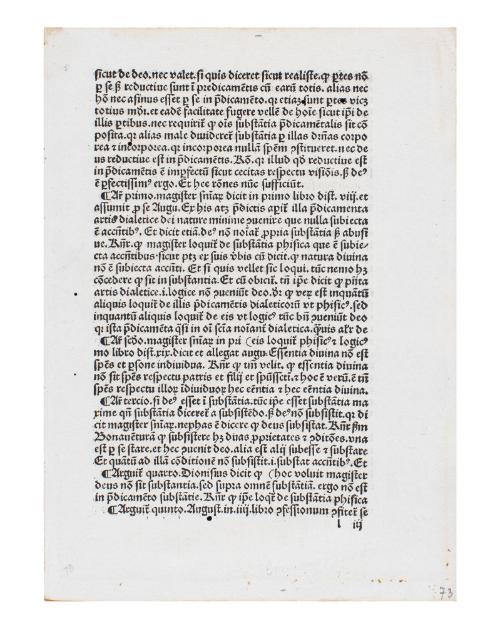 sicut de deo. nec valet. si quis diceret sicut realiste. ꝙ ꝑtes nō
ꝑ se ß reductiue sunt ī predicamētis cū earū totis. alias nec
hō nec asinus esset ꝑ se in p̄dicamēto. qꝛ etiaꝫ sunt ꝑtes vicꝫ
totius mōi. et eadē facilitate fugere vellē de hoīe sicut ip̄i de
illis ꝑtibus. nec requirit̄ ꝙ oīs substātia p̄dicamētalis sit cō
posita. qꝛ alias male diuideret̄ substātia ꝑ illas dr̄nas corpo
rea ⁊ incorporea. qꝛ incorporea nullā spēm ꝯstitueret. nec de
us reductiue est in p̄dicamētis. Rō. qꝛ illud qd̄ reductiue est
in p̄dicamētis ē imꝑfectū sicut cecitas respectu visiōis. ß deꝰ
ē ꝑfectissimꝰ ergo. Et hec rōnes nūc sufficiūt.
¶ Ar̄ primo. magister sn̄iaꝝ dicit in primo libro dist. viij. et
assumit ꝑ se Augu. Ex his atꝫ p̄dictis aꝑit̄ illa p̄dicamenta
artis dialetice dei nature minime ꝯuenire que nulla subiecta
ē accn̄tibꝰ. Et dicit etiā. deꝰ nō noīat̄ ꝓpria substātia ß abusi
ue. Rn̄r. ꝙ magister loquit̄ de substātia phisica que ē subie-
cta accn̄tibus. sicut ptꝫ ex suis v̄bis cū dicit. ꝙ natura diuina
nō ē subiecta accn̄ti. Et si quis vellet sic loqui. tūc nemo hꝫ
cōcedere ꝙ sit in substantia. Et cū obicit̄. tn̄ ip̄e dicit ꝙ p̄n̄ta
artis dialetice. i. logice nō ꝯueniūt deo. v̄ꝝ ē ꝙ veꝝ est inquātū
aliquis loquit̄ de illis p̄dicamētis dialeticoꝝ vt phisicꝰ. sed
inquantū aliquis loquit̄ de eis vt logicꝰ tūc bn̄ ꝯueniūt deo
qꝛ ista p̄dicamēta q̄si in oī scīa noīant̄ dialetica. q̄uis alr̄ de
¶ Ar̄ scd̄o. magister sn̄iaꝝ in pri eis loquit̄ phisicꝰ ⁊ logicꝰ
mo libro dist. xix. dicit et allegat augu. Essentia diuina nō est
spēs et ꝑsone indiuidua. Rn̄r ꝙ vn̄ velit. ꝙ essentia diuina
nō sit spēs respectu patris et filij et spūssct̄i. ⁊ hoc ē verū. ē tn̄
spēs respectu illoꝝ īdiuiduoꝝ hec eēntia ⁊ hec eēntia diuina.
¶ Ar̄ tercio. si deꝰ esset ī substātia. tūc ip̄e esset substātia ma
xime qn̄ substātia diceret̄ a subsistēdo. ß deꝰ nō subsistit. qꝛ di
cit magister sn̄iaꝝ. nephas ē dicere ꝙ deus subsistat. Rn̄r sm̄
Bonauēturā ꝙ subsistere hꝫ duas ꝓprietates ⁊ ꝯditōes. vna
est ꝑ se stare. et hec ꝯuenit deo. alia est alij subesse ⁊ substare
Et quātū ad illā cōditionē nō subsistit. i. substat accn̄tibꝰ. Et
¶ Arguit̄ quarto. Dionisius dicit ꝙ hoc voluit magister
deus nō sit substantia. sed supra omnē substātiā. ergo nō est
in p̄dicamēto substātie. Rn̄r ꝙ ip̄e loqt̄ de substātia phisica
¶ Arguit̄ quinto. August. in. iiij. libro ꝯfessionum ꝯfitet̄ se
l iij
73